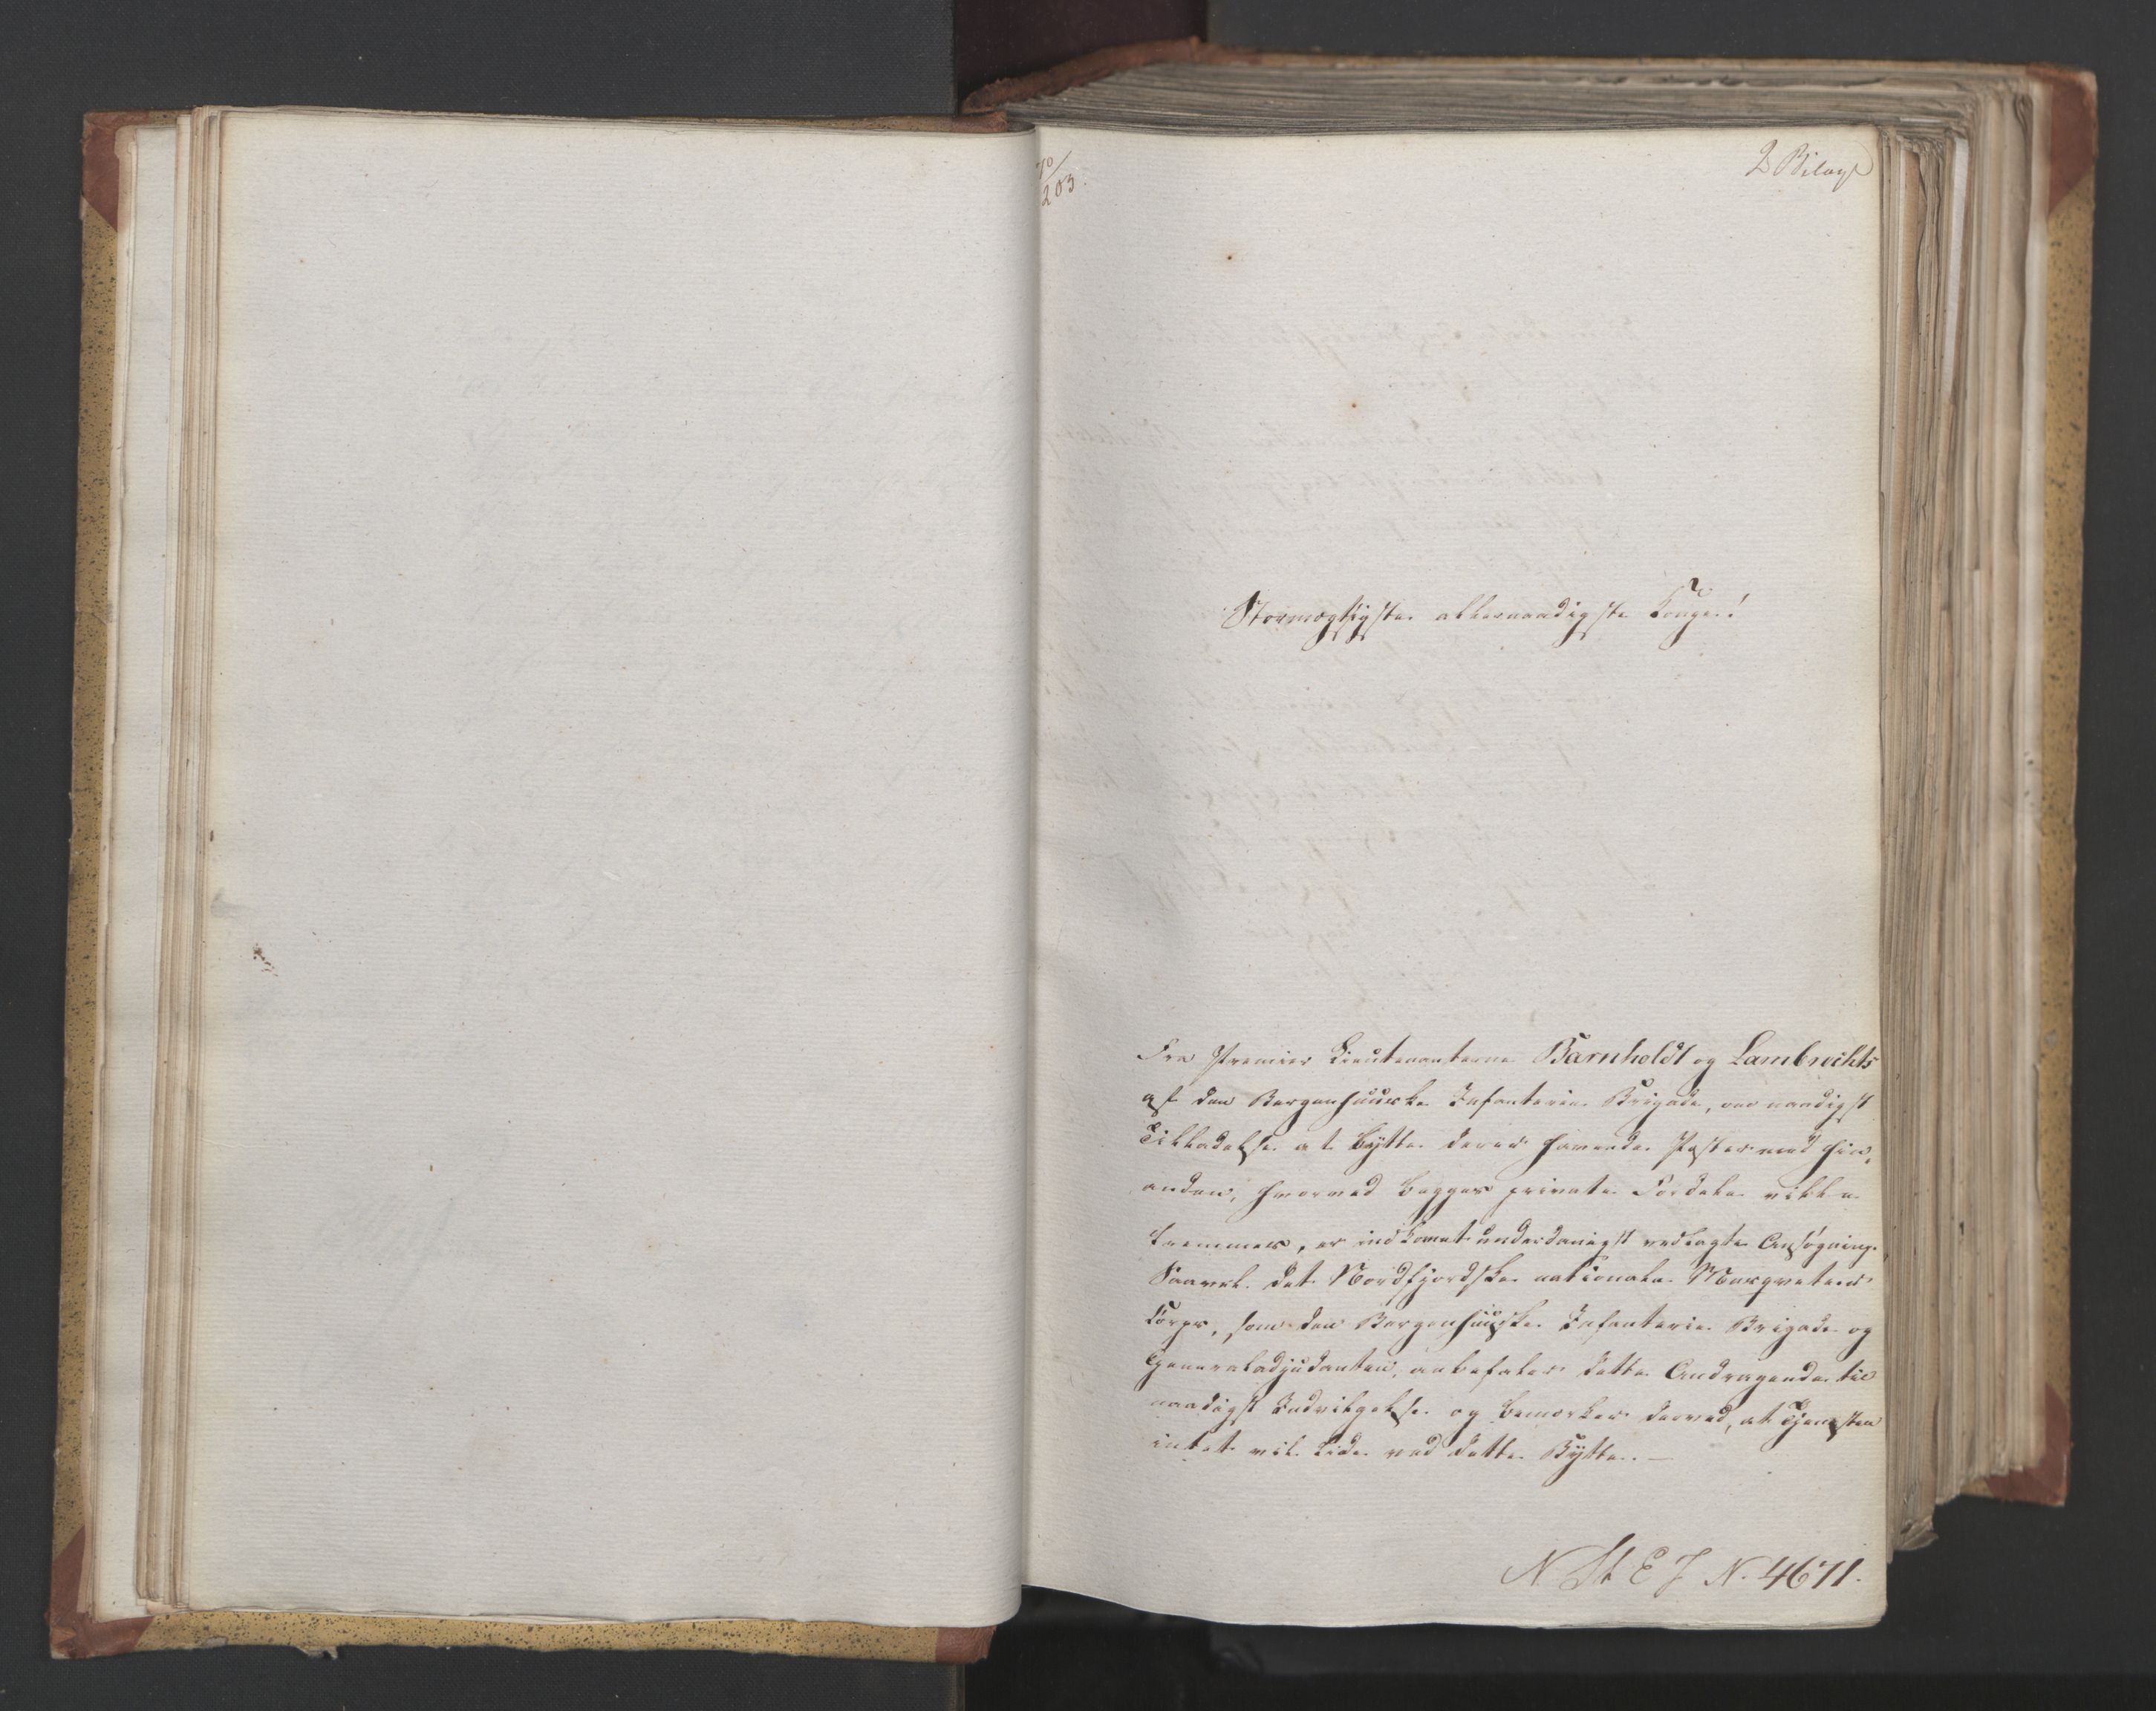 2 Bilage
203
Stormægtigste allernaadigste Konge!
Fra Premier Lieutenanterne Barnholdt og Lambrechts
af den Bergenhuuske Infanterie Brigade, om naadigst
Tilladelse at bytte deres havende Poster med hin,
anden, hvorved begges private Fordele ville
fremmes, er indkomet underdanigst vedlagte Ansøgning.
Saavel det Nordfjordske nationale Musqueteer
Corps, som den Bergenhuuske Infanterie Brigade og
Generaladjudanten, anbefaler dette Andragende til
naadigst Indvilgelse og bemærker derved, at Tjenesten
intet vil lide ved dette Bytte. —
N St E J N. 4671.